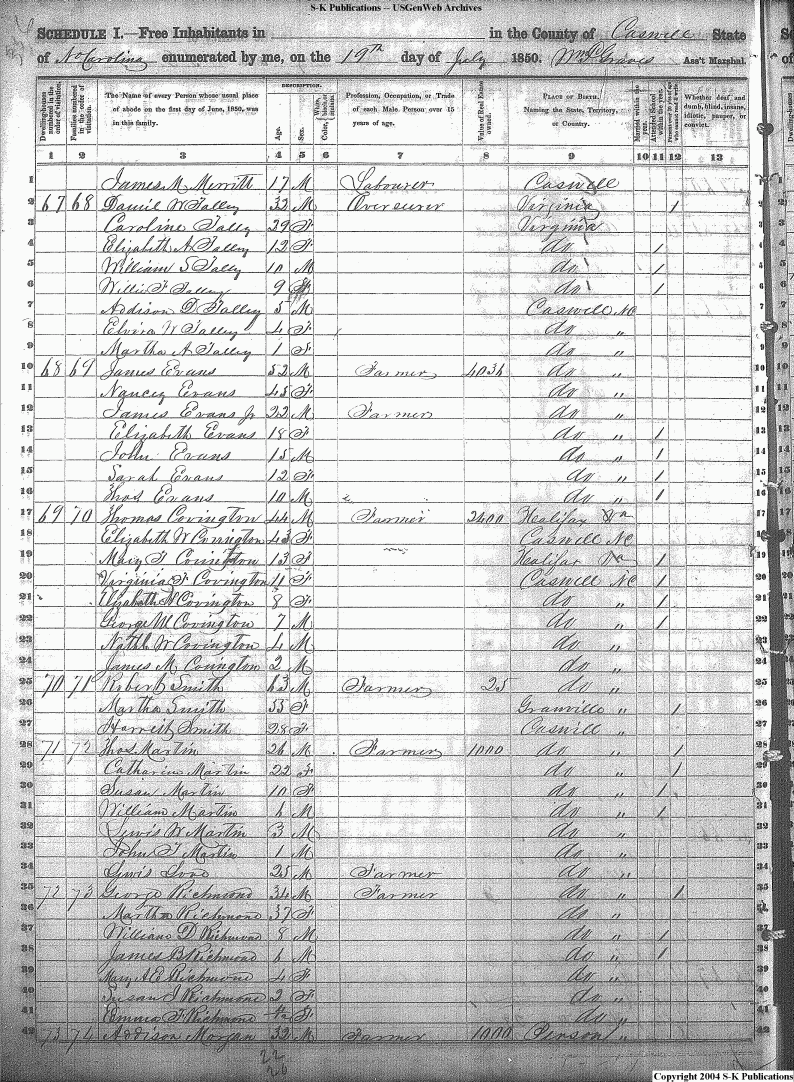 S-K Publications -- USGenWeb Archives
SCHEDULE I.—Free Inhabitants in in the County of Caswell State
of No Carolina enumerated by me, on the 19th day of July 1850. Wm Graves Ass't Marshal.
DESCRIPTION.
Dwelling-houses numbered in the order of visitation. Families numbered in the order of visitation. The Name of every Person whose usual place of abode on the first day of June, 1850, was in this family. Age. Sex. Color, White, black, or mulatto. Profession, Occupation, or Trade of each Male Person over 15 years of age. Value of Real Estate owned. PLACE OF BIRTH. Naming the State, Territory, or Country. Married within the year. Attended School within the year. Persons over 20 y'rs of age who cannot read & write. Whether deaf and dumb, blind, insane, idiotic, pauper, or convict.
1 2 3 4 5 6 7 8 9 10 11 12 13
1 James M Merritt 17 M Labourer Caswell 1
2 67 68 Daniel W Talley 32 M Overseurer Virginia 1 2
3 Caroline Tally 29 F Virginia 3
4 Elizabeth A Talley 12 F do 1 4
5 William S Talley 10 M do 1 5
6 Willie F Talley 9 do 1 6
7 Addison D Talley 5 M Caswell NC 7
8 Elvira W Talley 4 F do " 8
9 Martha A Talley 1 F do " 9
10 68 69 James Evans 52 M Farmer 4036 do " 10
11 Nancey Evans 45 F do " 11
12 James Evans Jr 22 M Farmer do " 12
13 Elizabeth Evans 18 F do " 1 13
14 John Evans 15 M do " 1 14
15 Sarah Evans 12 F do " 1 15
16 Thos Evans 10 M do " 1 16
17 69 70 Thomas Covington 44 M Farmer 2400 Halifax Va 17
18 Elizabeth W Covington 43 F Caswell NC 18
19 Mary F Covington 13 F Halifax Va 1 19
20 Virginia F Covington 11 F Caswell NC 1 20
21 Elizabeth Covington 8 F do " 1 21
22 George M Covington 7 M do " 1 22
23 Nathl W Covington 4 M do " 23
24 James M Covington 2 M do " 24
25 70 71 Robert Smith 63 M Farmer 25 do " 25
26 Martha Smith 53 F Granville " 1 26
27 Harreit Smith 28 F Caswell " 27
28 71 72 Thos Martin 26 M Farmer 1000 do " 1 28
29 Catharin Martin 22 F do " 1 29
30 Susan Martin 10 F do " 1 30
31 William Martin 6 M do " 1 31
32 Lewis W Martin 3 M do " 32
33 John T Martin 1 M do " 33
34 Lewis 25 M Farmer do " 34
35 72 73 George Richmond 34 M Farmer do " 1 35
36 Martha Richmond 37 F do " 36
37 William D Richmond 8 M do " 1 37
38 James B Richmond 6 M do " 1 38
39 Mary A E Richmond 4 F do " 39
40 Susan J Richmond 2 F do " 40
41 Emma F Richmond F do " 41
42 73 74 Addison Morgan 32 M Farmer 1000 Person " 42
22
20
Copyright 2004 S-K Publications